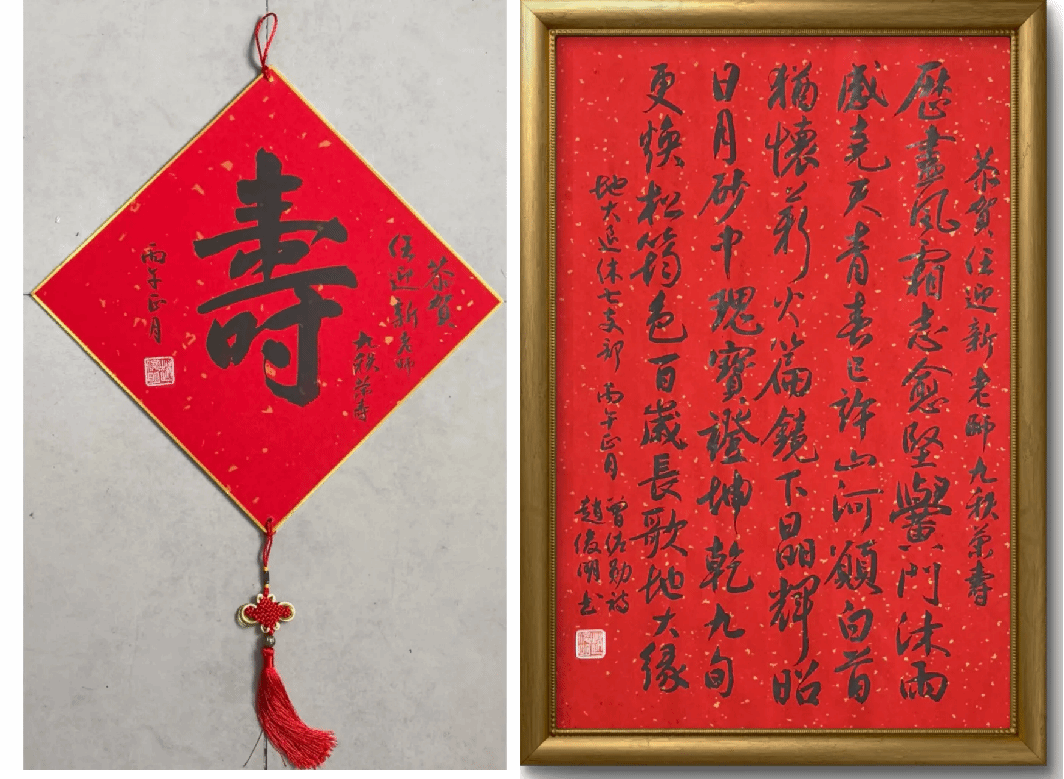 恭賀
任迎新老師
九秩榮壽
壽
丙午正月
恭賀任迎新老師九秩榮壽
歷盡風霜志愈堅黌門沐雨
感堯天青春已許山河願白首
猶懷薪火篇鏡下晶輝昭
日月砂中瑰寶證坤乾九旬
更煥松筠色百歲長歌地大緣
地大退休七支部 丙午正月
曾佐勛詩
趙俊明书